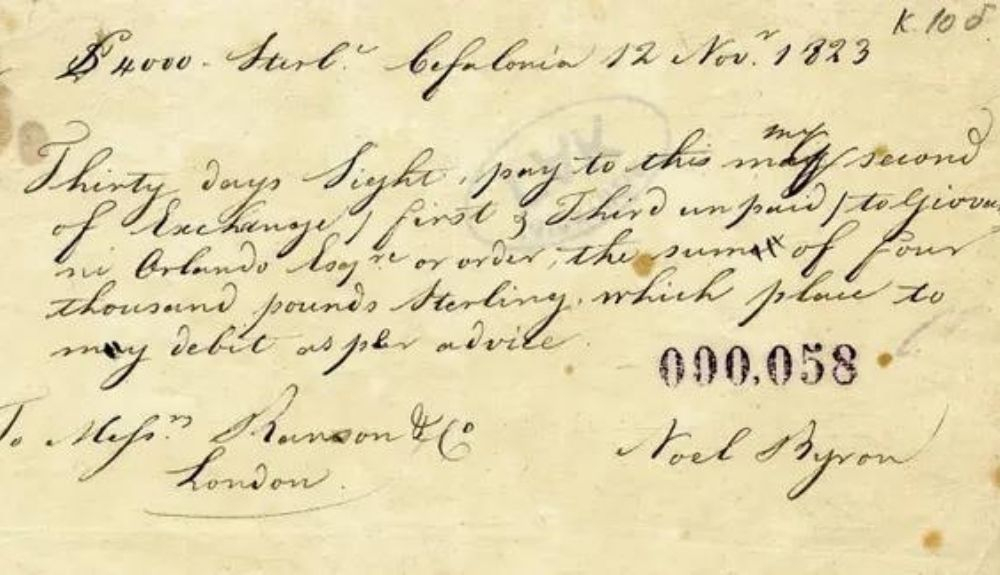 K. 10 5.
£ 4000. Sterl.ᵍ Cefalonia 12 Nov.ʳ 1823
Thirty days Sight, pay to this my second
of Exchange / first & Third unpaid / to Giovan
ni Orlando Esqre or order, the sum of four
thousand pounds Sterling. which place to
my debit as per advice.
090,058
To Messrs Ransom & Co
London.
Noel Byron